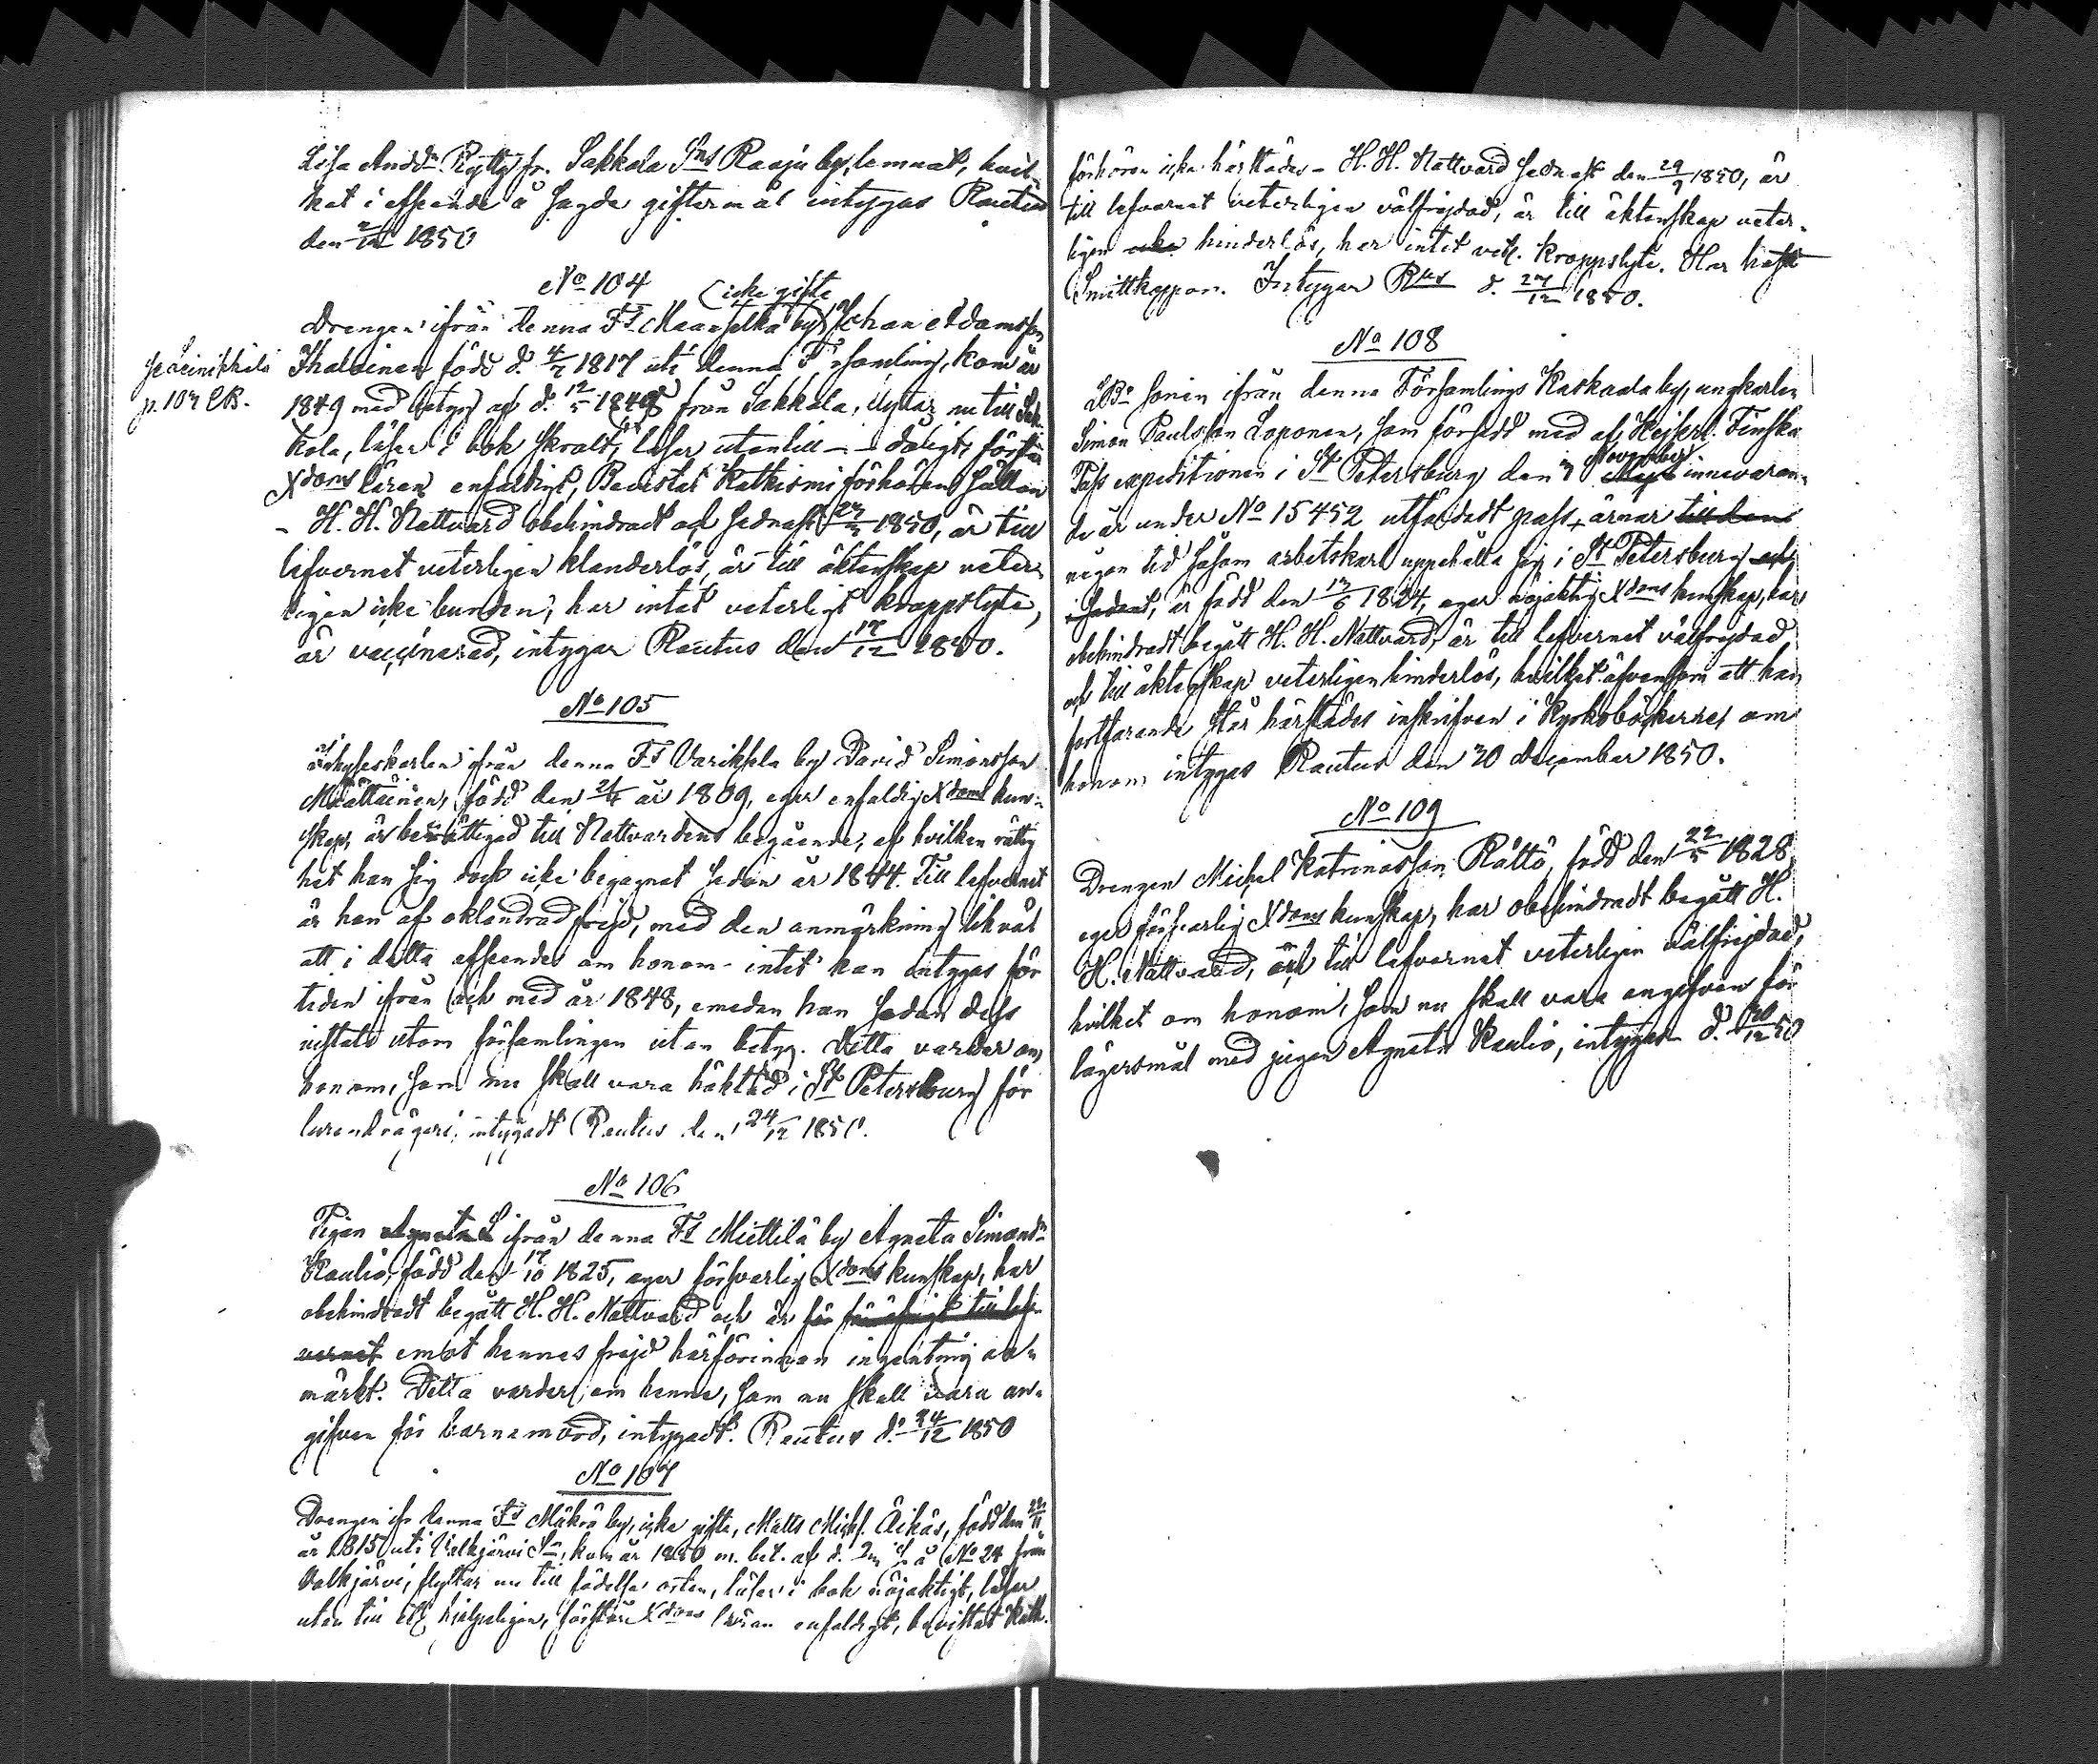 Lisa Andd:r Pytty fr. Sakkola S:ns Raaju by, lemnat, hvil-
ket i afseende å sagde giftermål intygas Rautus
den 2/12 1850
No 104
(icke gifte
Drengen ifrån denna F:s Maanselkä by Johan Adamsson
Ihalainen född d. 4/7 1817 uti denna Församling, kom år
p. 107 CB.
1849 med betyg af d. 12/5 1849 från Sakkola, flyttar nu till Sak-
kola, läser i bok skralt, läser utantill - - dåligt, förstår
Xdoms läran enfaldigt, Bevistat Katkismi förhören, hållen
- H. H. Nattvard obehindradt och sednast 1850, är till
lefvernet veterligen klanderlös, är till äktenskap veter-
ligen icke bunden, har intet veterligt kroppslyte,
är vaccinerad, intygar Rautus den 17/12 1850.
No 105
ifrån denna F:s Varikselä by David Simonsson
Määttäinen, född den år 1809, eger enfaldig Xdoms kun-
skap, är berättigad till Nattvardens begående, af hvilken rättig
het han sig dock icke begagnat sedan år 1844. Till lefvernet
är han af oklandrad frejd, med den anmärkning likväl
att i detta afseende om honom intet kan intygas för
tiden ifrån och med år 1848, emedan han sedan dess
vistats utom församlingen utan betyg. Detta varder om
honom, som nu skall vara häktad i St Petersburg för
lurendrägeri, intygadt Rautus den 24/12 1850.
No 106
Pigan Agneta S ifrån denna F:s Miettilä by Agneta Simonsd:r
Kaulio, född den 17/10 1825, eger försvarlig Xdoms kunskap, har
obehindradt begått H. H. Nattvard och är för
vernet emot hennes frejd härförinnan ingenting an-
märkt. Detta varder om henne, som nu skall vara an-
gifven för barnamord, intygadt. Rautus d. 24/12 1850
No 107
Drengen ifr denna F:s Mäkrä by, icke gifte, Matts Mich. Äikäs, född den 22/11
år 1815 uti Valkjärvi S:n, kom år 1850 m. bet. af d. å No 24 från
Valkjärvi, flyttar nu till födelse orten, läser i bok nöjaktigt, läser
utan till hjelpeligen, förstår Xdoms läran enfaldigt, bevistat Kath.
förhören icke härstädes - H. H. Nattvard sednast den 29/9 1850, är
till lefvernet veterligen välfrejdad, är till äktenskap veter-
ligen icke hinderlös, har intet vetl. kroppslyte. Har haft
Smittkoppor. Intygar R:us d. 27/12 1850.
No 108
sonen ifrån denna Församlings Kaskaala by, ungkarlen
Simon Paulsson Loponen, som försedd med af Kejserl. Finska
Pass expeditionen i St Petersburg den 7 November innevaran-
de år under No 15452 utfärdadt pass, ärnar till den
någon tid såsom arbetskarl uppehålla sig i St Petersburg och
är född den 13/6 1824, eger nöjaktig Xdoms kunskap, har
obehindradt begått H. H. Nattvard, är till lefvernet välfrejdad,
och till äktenskap veterligen hinderlös, hvilket äfvensom att han
fortfarande står härstädes inskrifven i Kyrkoböckerne, om
honom intygas Rautus den 30 december 1850.
No 109
Drengen Michel Katrinasson Rättö, född den 22/5 1828,
eger försvarlig Xdoms kunskap, har obehindradt begått H.
H. Nattvard, är till lefvernet veterligen välfrejdad,
hvilket om honom, som nu skall vara angifven för
lägersmål med pigan Agneta Kaulio, intygas d. 30/12 50